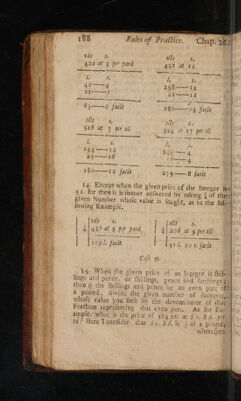 188 Rules of Practice. Chap. 26.
yds s.
422 at 3 per yard
l. s.
42—4
21—2
63—6 facit
ells s.
431 at 13
l. s.
258—12
21—11
280—03 facit
ells s.
516 at 7 per ell
l. s.
154—16
25—16
180—12 facit
ells s.
324 at 17 per ell
l. s.
275—8 facit
14. Except when the given price of the Integer is
5 s. for then it is sooner answered by taking ¼ of the
given Number whose value is sought, as in the fol-
lowing Example.
yds s.
¼ 436 at 5 per yard
109 l. facit
ells s.
¼ 206 at 5 per ell
51 l. 10 s. facit
Case 5.
15. When the given price of an Integer is shil-
lings and pence, or shillings, pence and farthings;
then if the shillings and pence be an even part of
a pound, divide the given number of Integers
whose value you seek by the denominator of that
Fraction representing that even part. As for Ex-
ample, what is the price of 384 yds at 6 s. 8 d. per
yd? Here I consider that 6 s. 8 d. is ⅓ of a pound,
wherefore